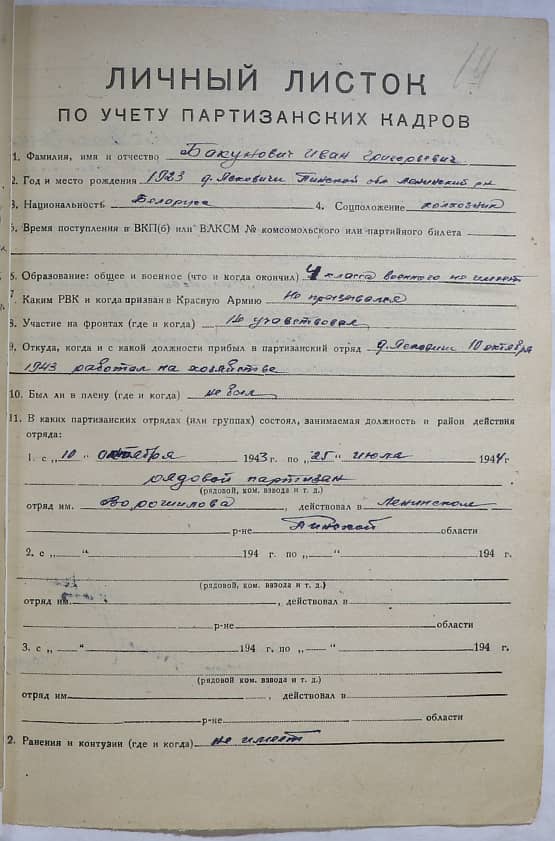 14
ЛИЧНЫЙ ЛИСТОК
ПО УЧЕТУ ПАРТИЗАНСКИХ КАДРОВ
1. Фамилия, имя и отчество Бакунович Иван Григорьевич
2. Год и место рождения 1923 д. Ясковичи Пинской обл Ленинский рн
3. Национальность Белорус 4. Соцположение колхозник
5. Время поступления в ВКП(б) или ВЛКСМ № комсомольского или партийного билета
6. Образование: общее и военное (что и когда окончил) 4 класса военного не имеет
7. Каким РВК и когда призван в Красную Армию Не призывался
8. Участие на фронтах (где и когда) Не участвовал
9. Откуда, когда и с какой должности прибыл в партизанский отряд д. 10 октября
1943 работал на хозяйстве
10. Был ли в плену (где и когда) не был
11. В каких партизанских отрядах (или группах) состоял, занимаемая должность и район действия
отряда:
1. с „10 “ октября 1943 г. по „25“ июля 1944 г
рядовой партизан
(рядовой, ком. взвода и т. д.)
отряд им. Ворошилова, действовал в Ленинском
р-не Пинской области
2. с „ “ 194 г. по „ “ 194 г.
(рядовой, ком. взвода и т. д.)
отряд им. , действовал в
р-не области
3. с „ “ 194 г, по „ “ 194 г.
(рядовой, ком. взвода и т. д.)
отряд им. , действовал в
р-не области
2. Ранения и контузии (где и когда) не имеет